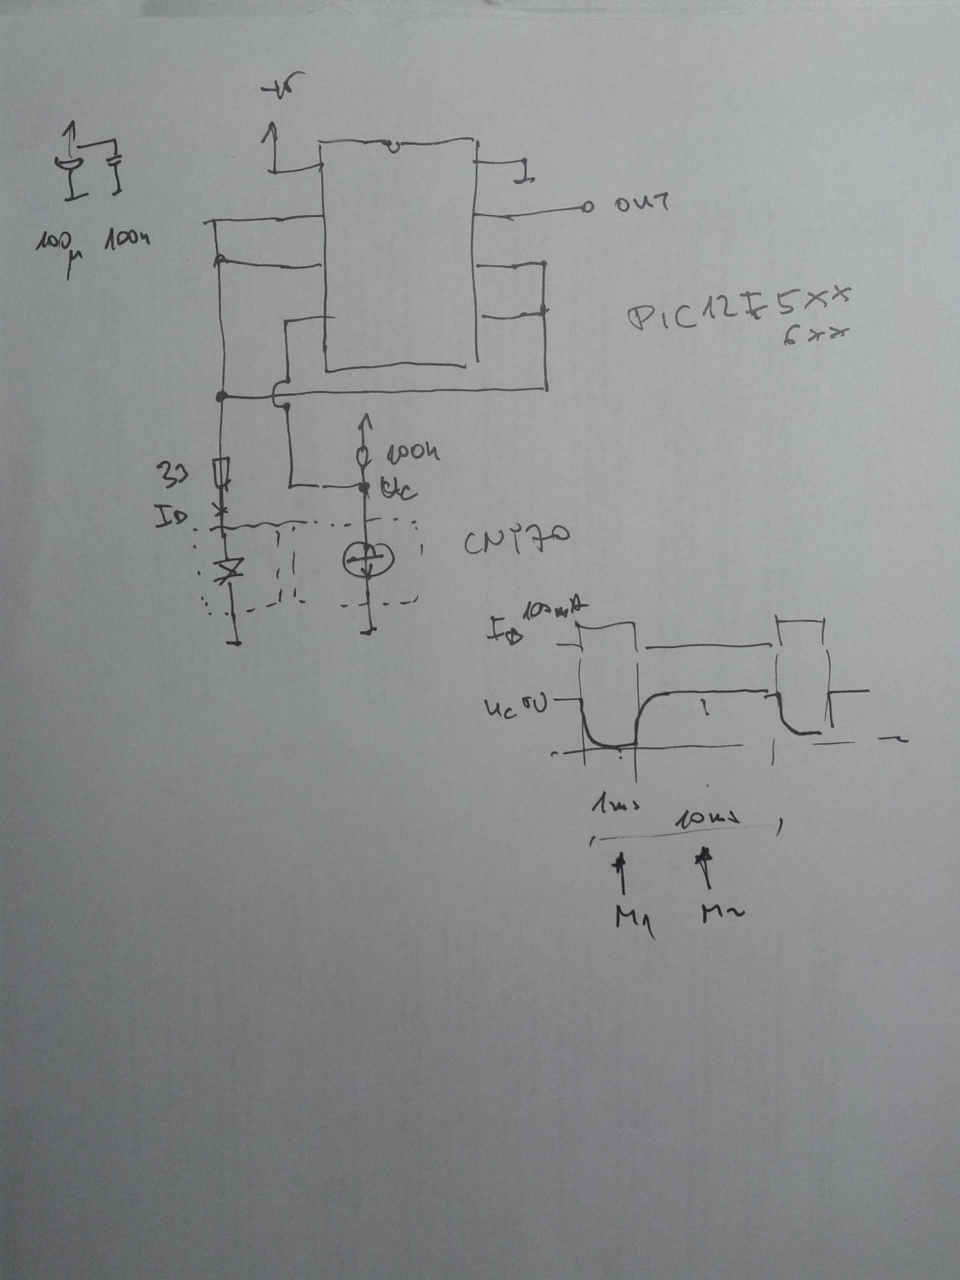 100µ 100n
OUT
PIC12F5xx
6xx
33
ID
UC
CNY70
ID 100mA
UC 0V
1ms
10ms
M1 M2